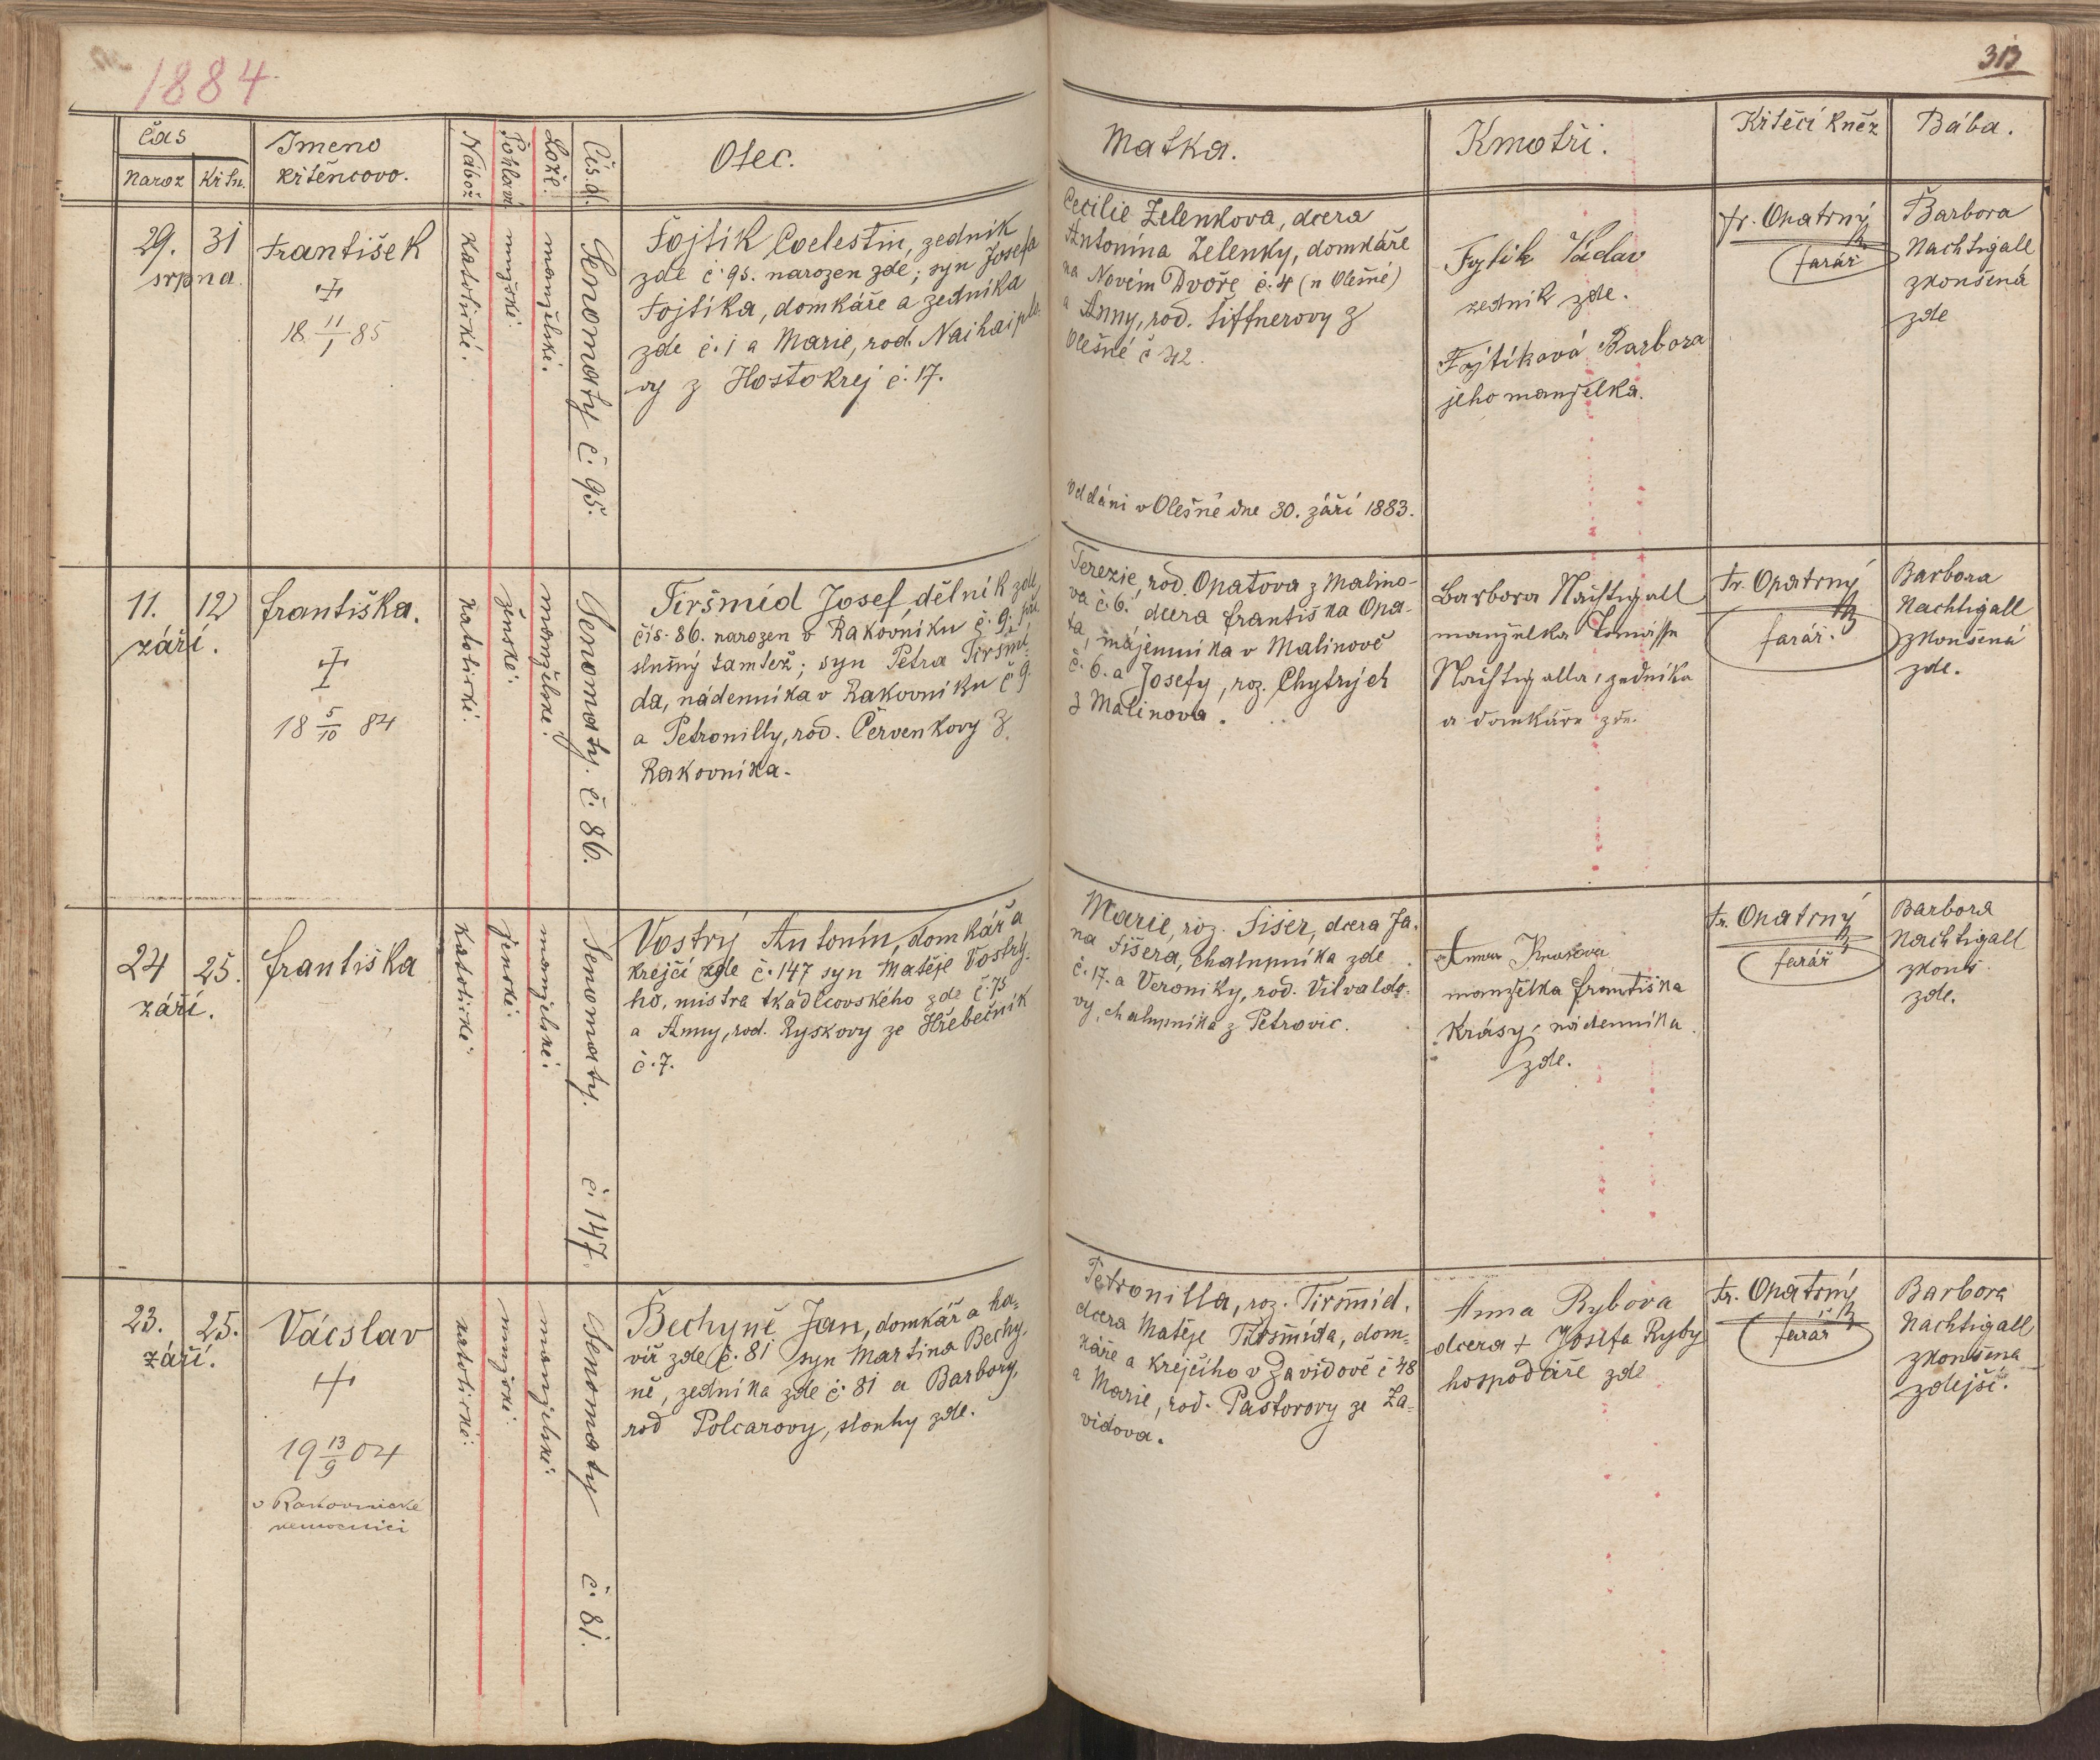 1884
313
Čas
Naroz Křtu.
Jmeno
křtěncovo.
Nábož.
Pohlaví.
Lože.
Čís. d.
Otec.
Matka.
Kmotři.
Křtěcí kněz
Bába.
29. 31
srpna
František
+
18 11/1 85
Katolické.
mužské.
manželské.
Senomaty č. 95.
Fojtík Coelestin, zedník
zde č. 95. narozen zde; syn Josefa
Fojtíka, domkáře a zedníka
zde č. 1 a Marie, rod.
vy z Hostokrej č. 17.
Cecilie Zelenkova, dcera
Antonína Zelenky, domkáře
na Novém Dvoře č. 4 (u Olešné)
a Anny, rod. Šiffnerovy z
Olešné č 42.
Oddáni v Olešné dne 30. září 1883.
Fojtík Václav
zedník zde.
Fojtíková Barbora
jeho manželka.
Fr. Opatrný
farář
Barbora
Nachtigall
zkoušená
zde
11. 12
září.
Františka.
+
18 5/10 84
katolické.
ženské.
manželské.
Senomaty. č. 86.
Tiršmíd Josef dělník zde
čís. 86. narozen v Rakovníku č. 9, pří
slušný tamtéž; syn Petra Tiršmí
da, nádenníka v Rakovníku č 9.
a Petronilly, rod. Červenkovy z
Rakovníka.
Terezie, rod. Opatova z Malino-
va č. 6. dcera Františka Opa-
ta, nájemníka v Malinově
č. 6. a Josefy, roz. Chytrých
z Malinova.
Barbora Nachtigall
manželka Tomáše
Nachtigalla, zedníka
a domkáře zde.
Fr. Opatrný
farář.
Barbora
Nachtigall
zkoušená
zde.
24 25.
září.
Františka
Katolické.
ženské.
manželské.
Senomaty. č. 147.
Vostrý Antonín, domkář a
krejčí zde č. 147 syn Matěje Vostrý-
ho, mistra tkádlcovského zde č. 75
a Anny, rod. Ryskovy ze Hřebečník
č. 7.
Marie, roz. Fišer, dcera Ja-
na Fišera, chalupníka zde
č. 17. a Veroniky, rod. Vilvaldo-
vy, chalupníka z Petrovic.
Anna Krasova
manželka Františka
Krásy, nádenníka
zde.
Fr. Opatrný
farář
Barbora
Nachtigall
zkouš.
zde.
23. 25.
září.
Vácslav
+
19 13/9 04
v Rakovnické
nemocnici
katolické.
mužské.
manželské.
Senomaty č. 81.
Bechyně Jan, domkář a ha=
víř zde č. 81 syn Martina Bechy-
ně, zedníka zde č. 81 a Barbory,
rod Polcarovy, slouhy zde.
Petronilla, roz. Tiršmíd,
dcera Matěje Tiršmída, dom=
káře a krejčího v Zavidově č 48
a Marie, rod. Pastorovy ze Za=
vidova.
Anna Rybova
dcera + Josefa Ryby
hospodáře zde
Fr. Opatrný
farář
Barbora
Nachtigall
zkoušena
zdejší.